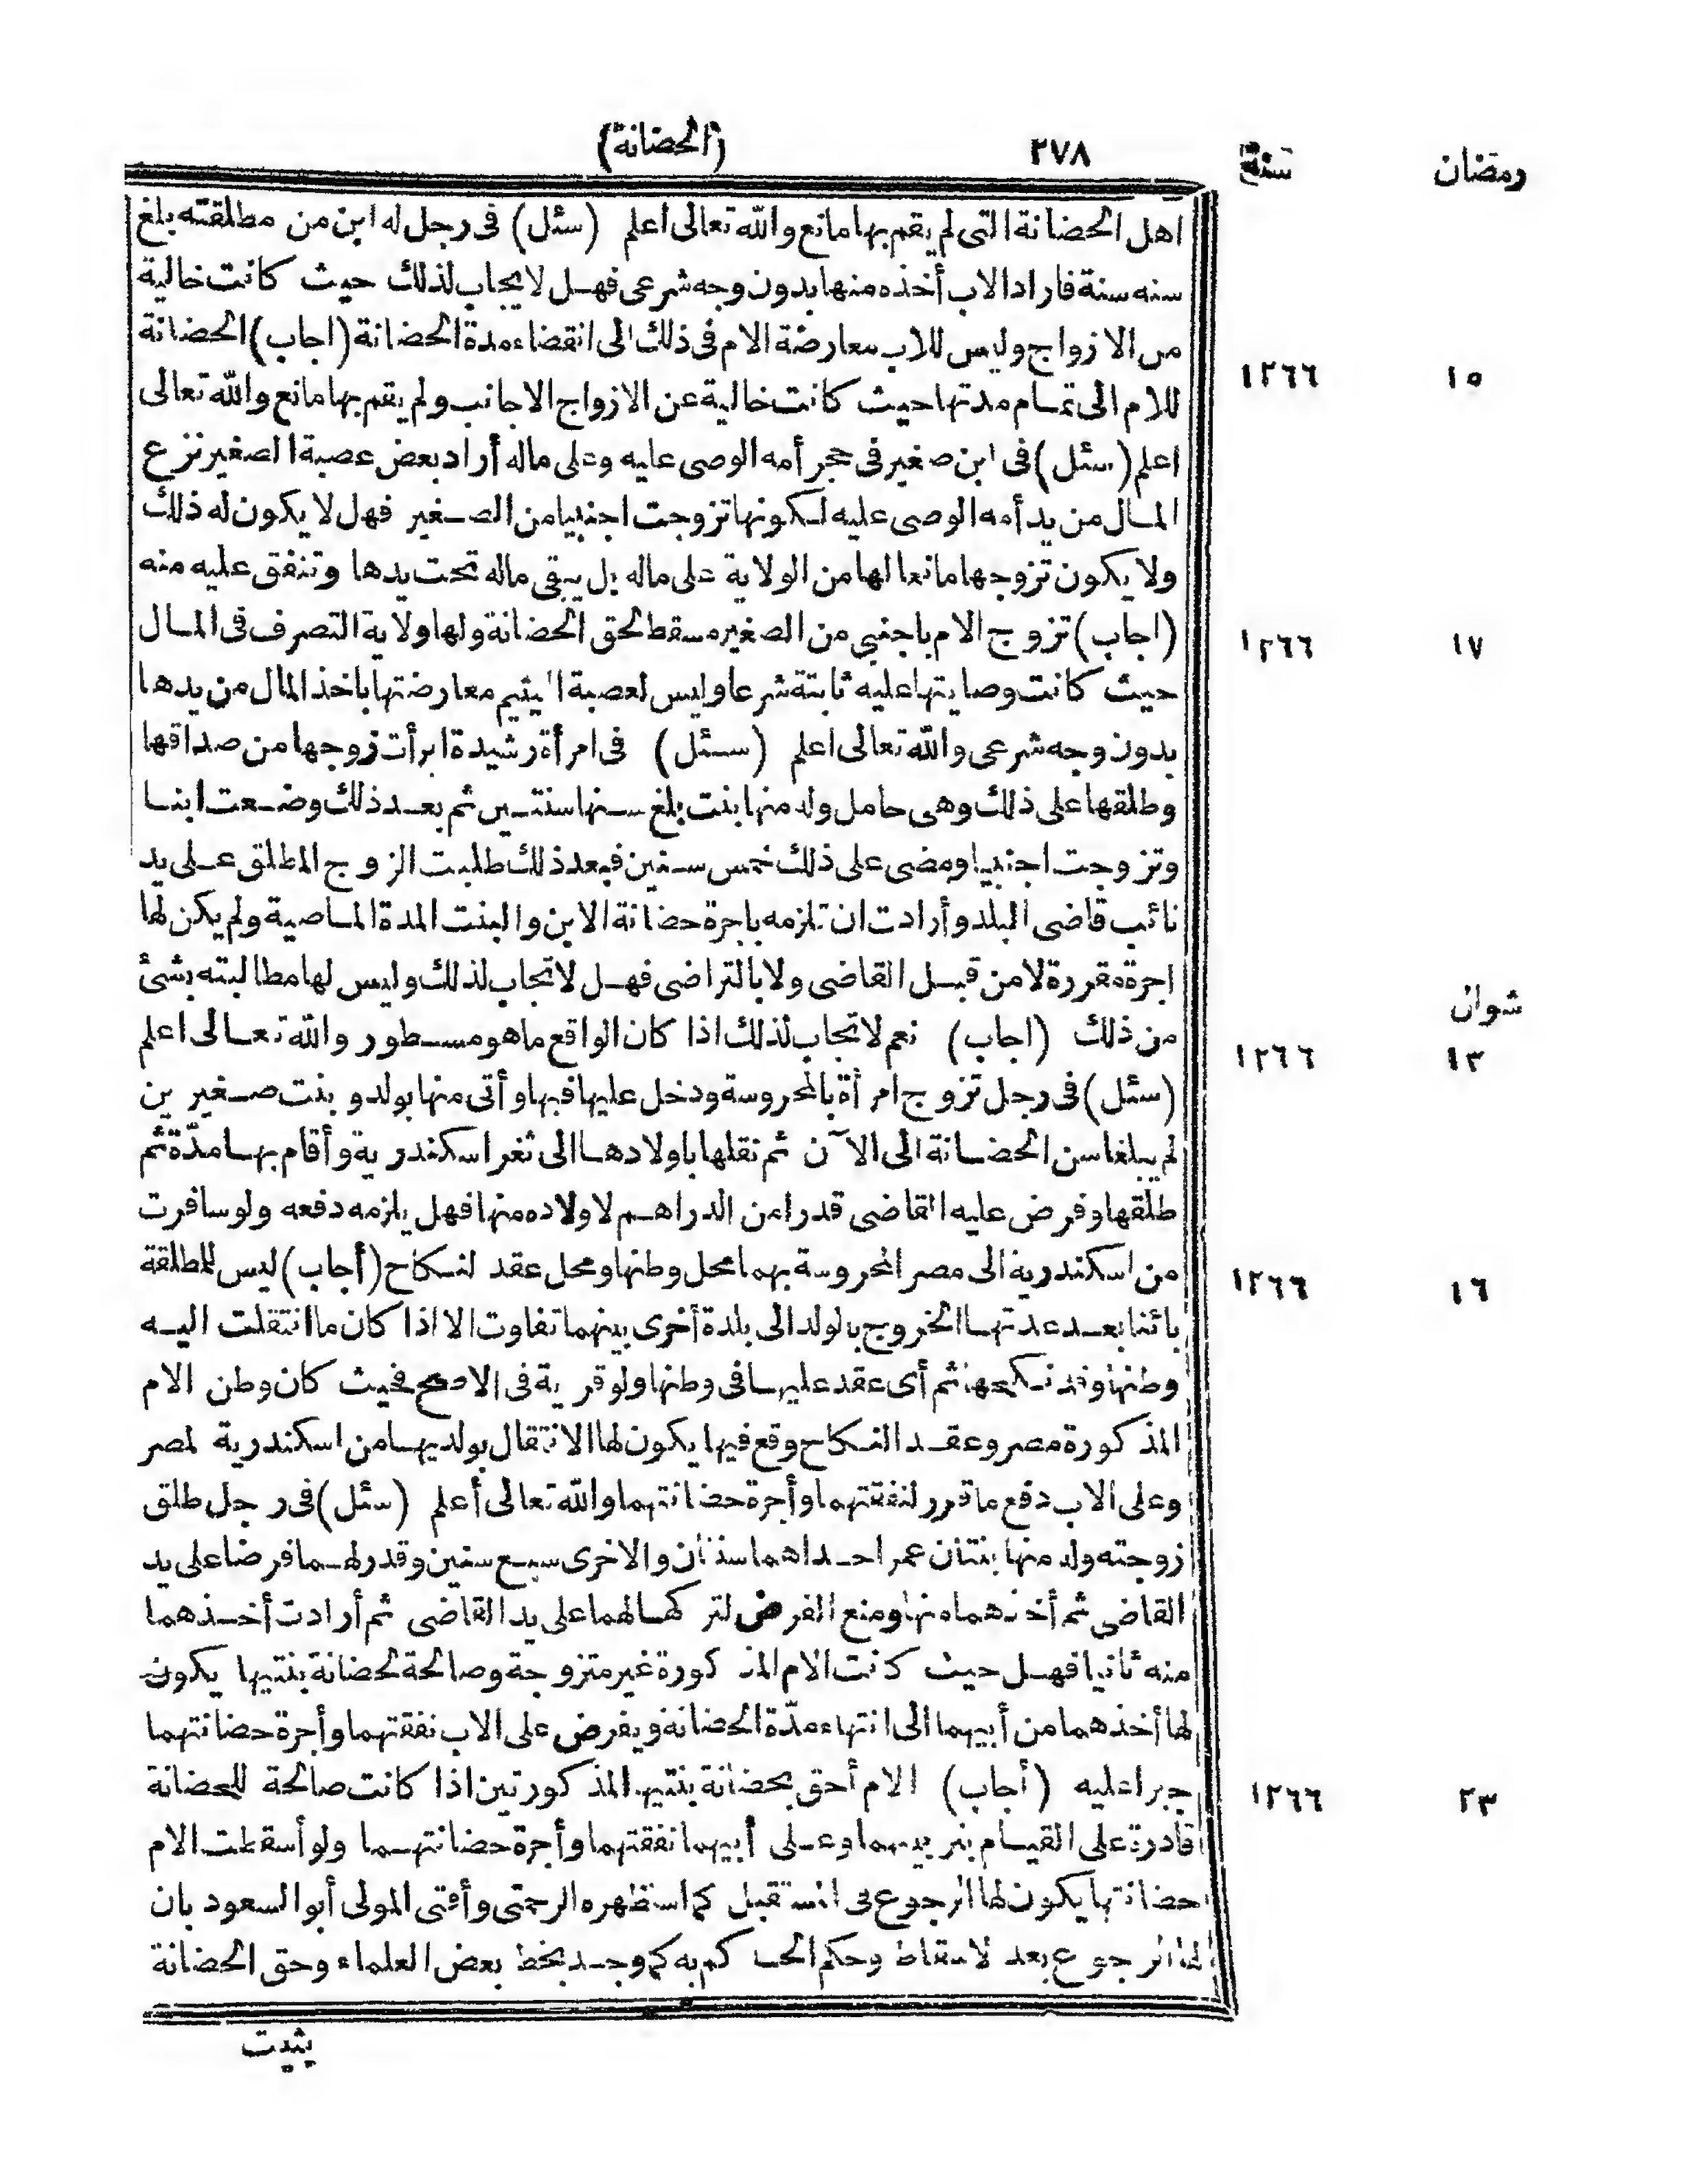 رمضان سنة ٢٧٨ (الحضانة)
اهل الحضانة التى لم يقم بها مانع والله تعالى اعلم (سئل) فى رجل له ابن من مطلقته بلغ
سنه سنة فاراد الاب أخذه منها بدون وجه شرعى فهل لا يجاب لذلك حيث كانت خالية
من الازواج وليس للاب معارضة الام فى ذلك الى انقضاء مدة الحضانة (اجاب) الحضانة
١٥ ١٢٦٦
للام الى تمام مدتها حيث كانت خالية عن الازواج الاجانب ولم يقم بها مانع والله تعالى
اعلم (سئل) فى ابن صغير فى حجر أمه الوصى عليه وعلى ماله أراد بعض عصبة الصغير نزع
المال من يد أمه الوصى عليه لكونها تزوجت اجنبيا من الصغير فهل لا يكون له ذلك
ولا يكون تزوجها مانعا لها من الولاية على ماله بل يبقى ماله تحت يدها وتنفق عليه منه
١٧ ١٢٦٦
(اجاب) تزوج الام باجنبى من الصغير مسقط لحق الحضانة ولها ولاية التصرف فى المال
حيث كانت وصايتها عليه ثابتة شرعا وليس لعصبة اليتيم معارضتها باخذ المال من يدها
بدون وجه شرعى والله تعالى اعلم (سئل) فى امرأة رشيدة ابرأت زوجها من صداقها
وطلقها على ذلك وهى حامل وله منها بنت بلغ سنها سنتين ثم بعد ذلك وضعت ابنا
وتزوجت اجنبيا ومضى على ذلك خمس سنين فبعد ذلك طلبت الزوج المطلق على يد
نائب قاضى البلد وأرادت ان تلزمه باجرة حضانة الابن والبنت المدة الماضية ولم يكن لها
اجرة مقررة لا من قبل القاضى ولا بالتراضى فهل لا تجاب لذلك وليس لها مطالبته بشئ
شوال
١٣ ١٢٦٦
من ذلك (اجاب) نعم لا تجاب لذلك اذا كان الواقع ما هو مسطور والله تعالى اعلم
(سئل) فى رجل تزوج امرأة بالمحروسة ودخل عليها فيها وأتى منها بولد وبنت صغيرين
لم يبلغا سن الحضانة الى الآن ثم نقلها باولادها الى ثغر اسكندرية وأقام بها مدّة ثم
طلقها وفرض عليه القاضى قدرا من الدراهم لاولاده منها فهل يلزمه دفعه ولو سافرت
من اسكندرية الى مصر المحروسة بهما محل وطنها ومحل عقد النكاح (أجاب) ليس للمطلقة
١٦ ١٢٦٦
بائنا بعد عدتها الخروج بالولد الى بلدة أخرى بينهما تفاوت الا اذا كان ما انتقلت اليه
وطنها وقد نكحها ثم أى عقد عليها فى وطنها ولو قرية فى الاصح فحيث كان وطن الام
المذكورة مصر وعقد النكاح وقع فيها يكون لها الانتقال بولديها من اسكندرية لمصر
وعلى الاب دفع ما قرر لنفقتهما وأجرة حضانتهما والله تعالى أعلم (سئل) فى رجل طلق
زوجته وله منها بنتان عمر احداهما سنتان والاخرى سبع سنين وقدر لهما فرضا على يد
القاضى ثم أخذهما منها ومنع الفرض لتركها لهما على يد القاضى ثم أرادت أخذهما
منه ثانيا فهل حيث كانت الام المذكورة غير متزوجة وصالحة لحضانة بنتيها يكون
لها أخذهما من أبيهما الى انتهاء مدّة الحضانة ويفرض على الاب نفقتهما وأجرة حضانتهما
٢٣ ١٢٦٦
جبرا عليه (أجاب) الام أحق بحضانة بنتيها المذكورتين اذا كانت صالحة للحضانة
قادرة على القيام بتربيتهما وعلى أبيهما نفقتهما وأجرة حضانتهما ولو أسقطت الام
حضانتها يكون لها الرجوع فى المستقبل كما استظهره الرحمتى وأفتى المولى أبو السعود بان
لها الرجوع بعد الاسقاط وحكم الحاكم به كما وجد بخط بعض العلماء وحق الحضانة
يثبت